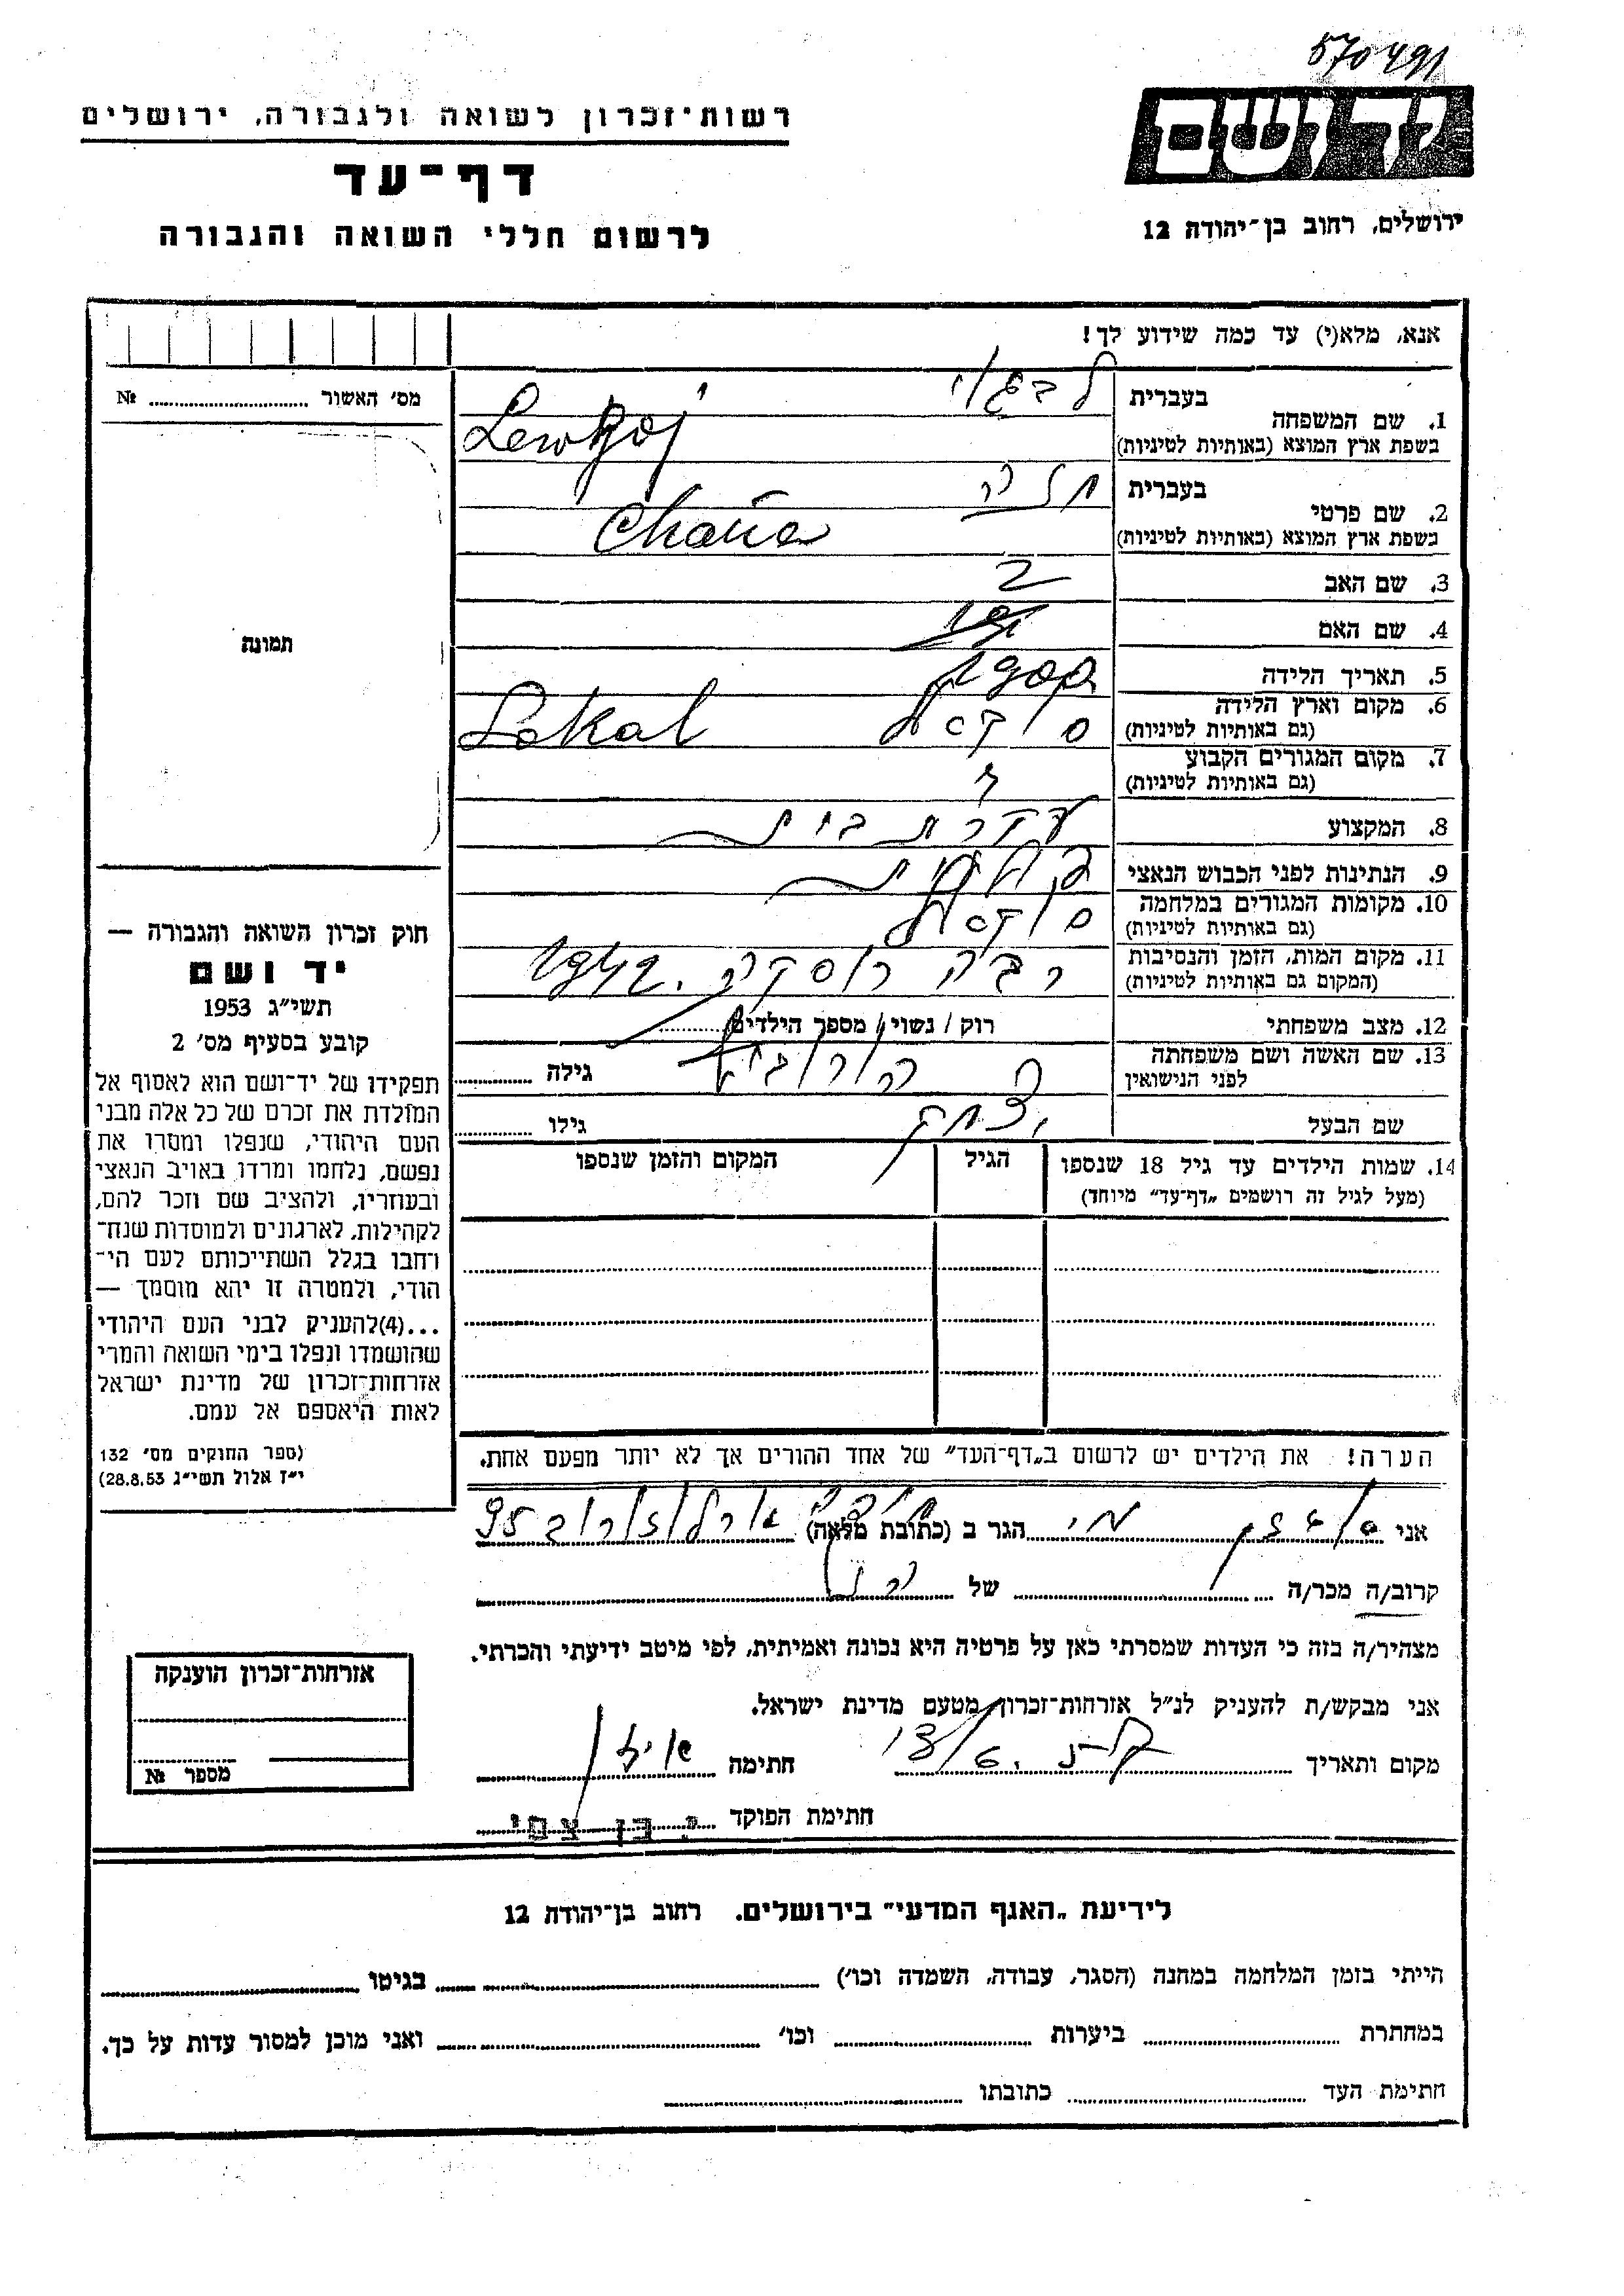 570491
יד ושם
רשות־זכרון לשואה ולגבורה, ירושלים
דף־עד
לרשום חללי השואה והגבורה
ירושלים, רחוב בן־יהודה 12
אנא, מלא(י) עד כמה שידוע לך!
מס׳ האשור ........ №
תמונה
1. שם המשפחה בעברית
בשפת ארץ המוצא (באותיות לטיניות)
2. שם פרטי בעברית חנה
בשפת ארץ המוצא (באותיות לטיניות) Chana
3. שם האב
4. שם האם
5. תאריך הלידה
6. מקום וארץ הלידה סוקאל Sokal
(גם באותיות לטיניות)
7. מקום המגורים הקבוע
(גם באותיות לטיניות)
8. המקצוע עקרת בית
9. הנתינות לפני הכבוש הנאצי פולנית
10. מקומות המגורים במלחמה סוקאל
(גם באותיות לטיניות)
11. מקום המות, הזמן והנסיבות רבה רוסקה 1942
(המקום גם באותיות לטיניות)
12. מצב משפחתי רוק / נשוי / מספר הילדים ........
13. שם האשה ושם משפחתה
לפני הנישואין גילה ........
שם הבעל יצחק גילו ........
14. שמות הילדים עד גיל 18 שנספו הגיל המקום והזמן שנספו
(מעל לגיל זה רושמים „דף־עד״ מיוחד)
הערה! את הילדים יש לרשום ב„דף־העד״ של אחד ההורים אך לא יותר מפעם אחת.
חוק זכרון השואה והגבורה —
יד ושם
תשי״ג 1953
קובע בסעיף מס׳ 2
תפקידו של יד־ושם הוא לאסוף אל
המולדת את זכרם של כל אלה מבני
העם היהודי, שנפלו ומסרו את
נפשם, נלחמו ומרדו באויב הנאצי
ובעוזריו, ולהציב שם וזכר להם,
לקהילות, לארגונים ולמוסדות שנח־
רחבו בגלל השתייכותם לעם הי־
הודי, ולמטרה זו יהא מוסמך —
...(4)להעניק לבני העם היהודי
שהושמדו ונפלו בימי השואה והמרי
אזרחות־זכרון של מדינת ישראל
לאות היאספם אל עמם.
(ספר החוקים מס׳ 132
י״ז אלול תשי״ג 28.8.53)
אני הגר ב (כתובת מלאה) ארלוזורוב 95
קרוב/ה מכר/ה של
מצהיר/ה בזה כי העדות שמסרתי כאן על פרטיה היא נכונה ואמיתית, לפי מיטב ידיעתי והכרתי.
אני מבקש/ת להעניק לנ״ל אזרחות־זכרון מטעם מדינת ישראל.
מקום ותאריך חתימה
חתימת הפוקד
אזרחות־זכרון הוענקה
מספר №
לידיעת „האגף המדעי״ בירושלים. רחוב בן־יהודה 12
הייתי בזמן המלחמה במחנה (הסגר, עבודה, השמדה וכו׳) בגיטו
במחתרת ביערות וכו׳ ואני מוכן למסור עדות על כך.
חתימת העד כתובתו